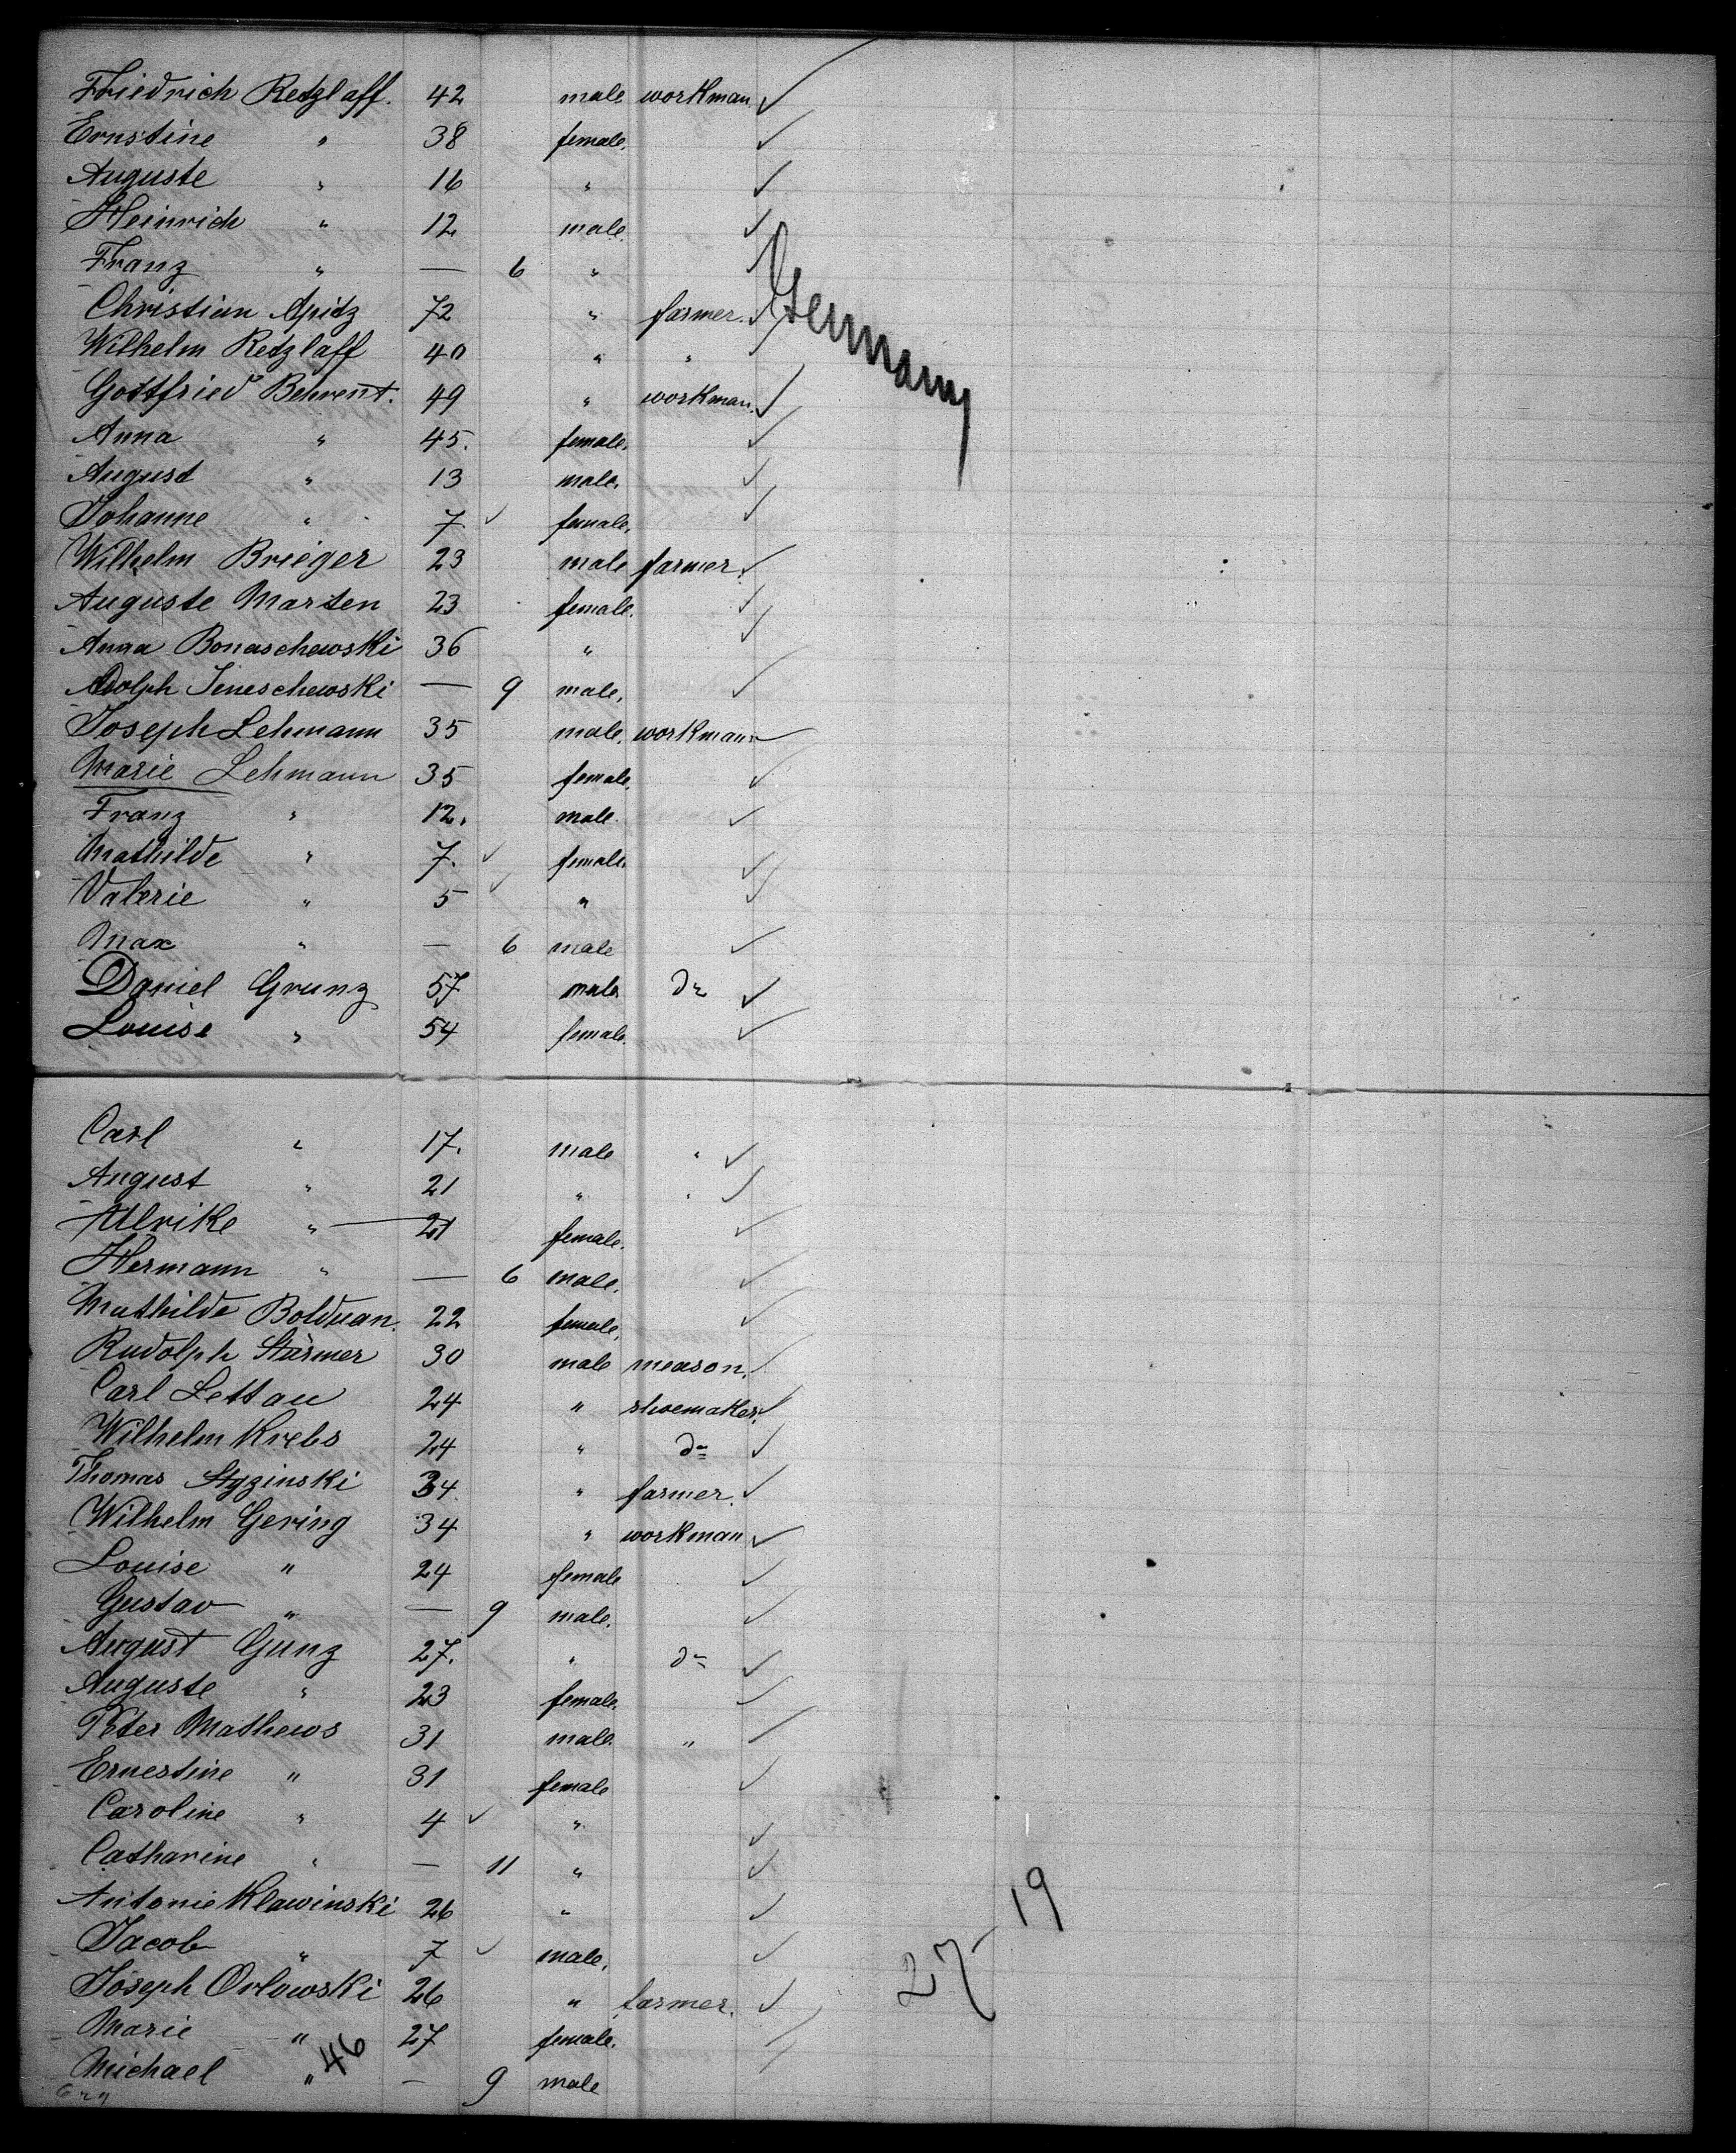 Friedrich Retzlaff. 42 male workman.
Ernstine " 38 female.
Auguste " 16 "
Heinrich " 12 male.
Franz " — 6 "
Christian Apitz 72 " farmer.
Wilhelm Retzlaff 40 " "
Gottfried Behrent. 49 " workman.
Anna " 45. female.
August " 13 male.
Johanne " 7 female.
Wilhelm Brieger 23 male farmer.
Auguste Marten 23 female.
Anna Bonaschewski 36 "
Adolph Jeneschewski — 9 male.
Joseph Lehmann 35 male. workman
Marie Lehmann 35 female.
Franz " 12. male.
Mathilde " 7. female.
Valerie " 5 "
Max " — 6 male
Daniel Grunz 57 male do
Louise " 54 female.
Germany
Carl " 17. male "
August " 21 " "
Ulrike " 21 female.
Hermann " — 6 male.
Mathilde Bolduan. 22 female.
Rudolph Stürmer 30 male meason.
Carl Lettau 24 " shoemaker.
Wilhelm Krebs 24 " do
Thomas Styzinski 34 " farmer.
Wilhelm Gering 34 " workman
Louise " 24 female
Gustav " — 9 male.
August Gunz 27. " do
Auguste " 23 female.
Peter Mathews 31 male. "
Ernestine " 31 female
Caroline " 4 "
Catharine " — 11 "
Antonie Klawinski 26 "
Jacob " 7 male.
Joseph Orlowski 26 " farmer.
Marie " 27 female.
Michael " — 9 male
46
27 19